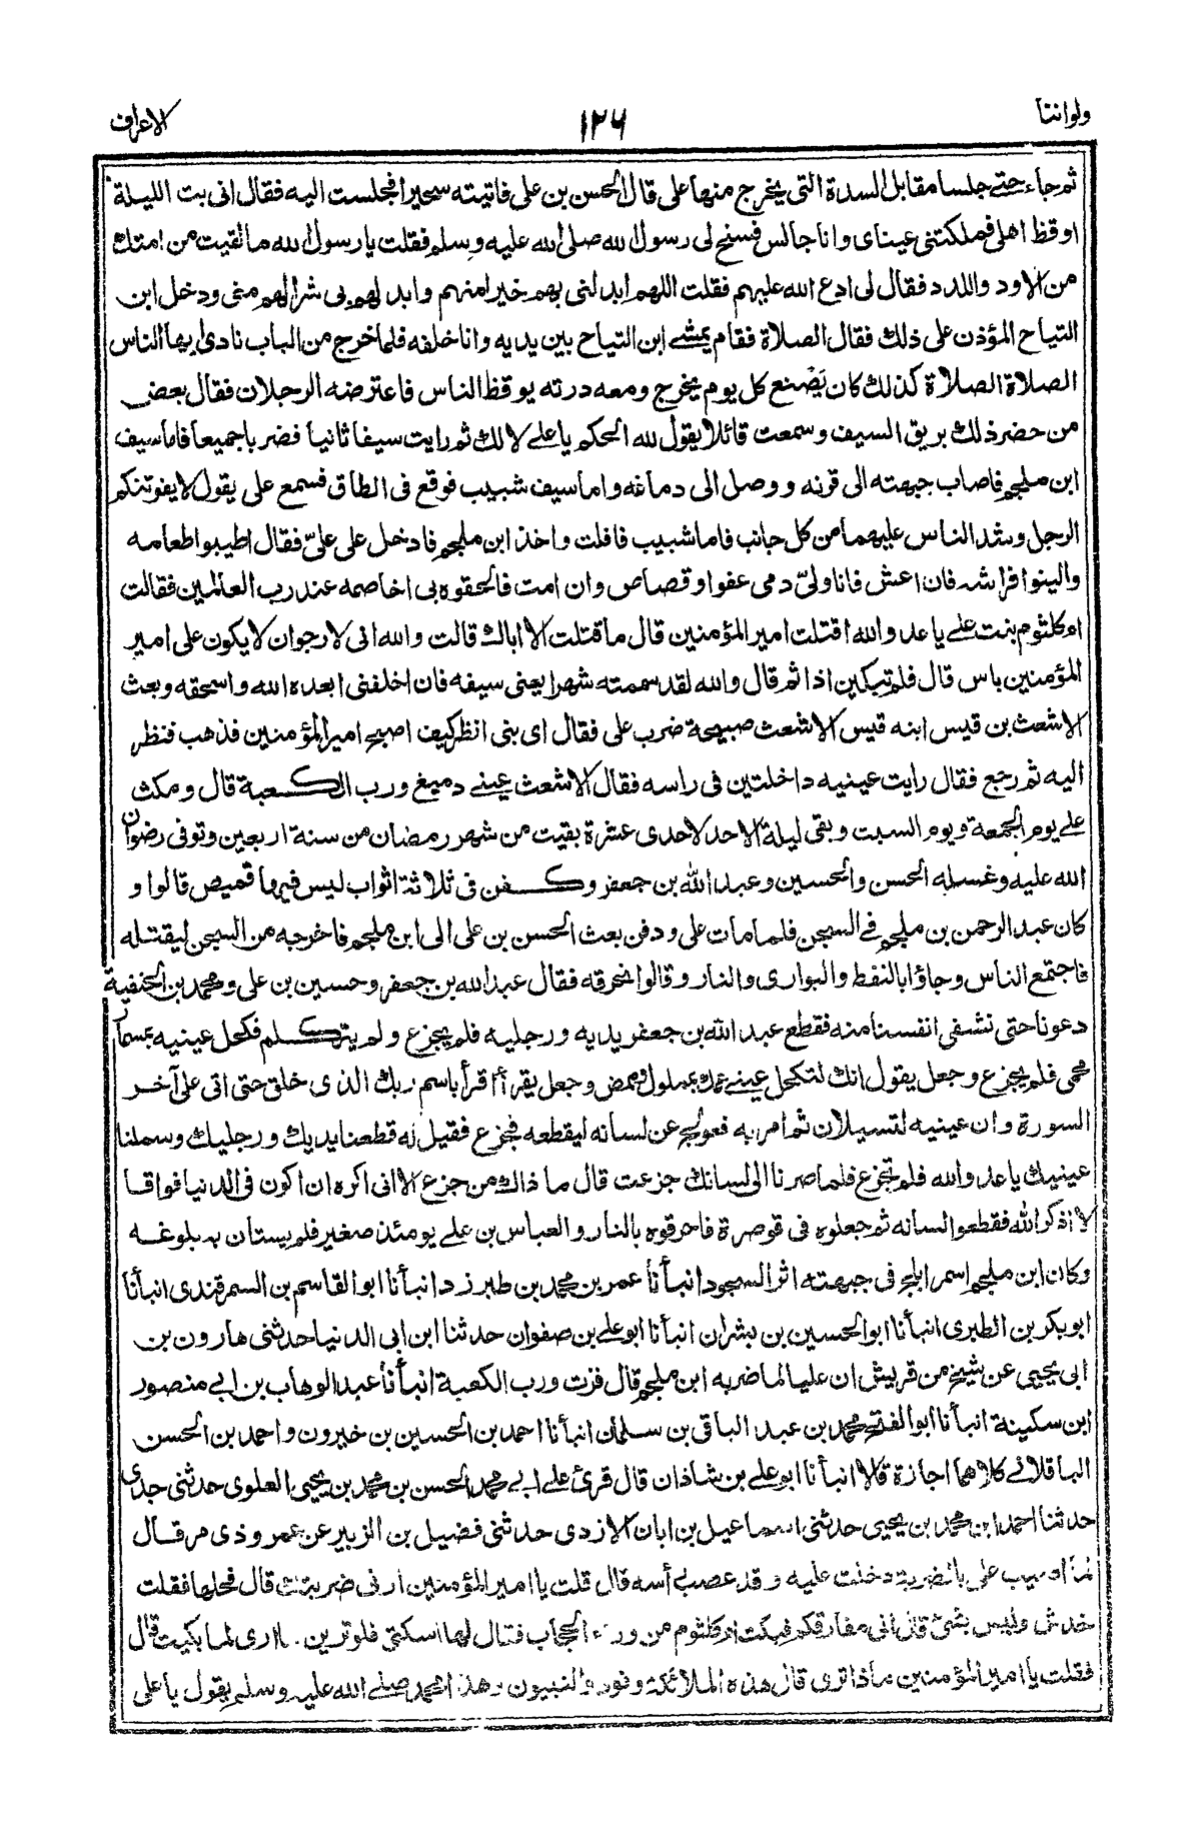 ولواننا
١٢٦
الاعراف
ثم جاء حتے جلسا مقابل السدة التى يخرج منها على قال الحسن بن على فاتيته سحيرا فجلست اليه فقال انى بت الليلة
اوقظ اهلى فملكتنى عيناى وانا جالس فسنح لى رسول الله صلى الله عليه وسلم فقلت يا رسول الله ما لقيت من امتك
من الاود واللدد فقال لى ادع الله عليهم فقلت اللهم ابدلنى بهم خيرا منهم وابدلهم بى شرا لهم منى ودخل ابن
التياح المؤذن على ذلك فقال الصلاة فقام يمشے ابن التياح بين يديه وانا خلفه فلما خرج من الباب نادى ايها الناس
الصلاة الصلاة كذلك كان يصنع كل يوم يخرج ومعه درته يوقظ الناس فاعترضه الرجلان فقال بعض
من حضر ذلك بريق السيف وسمعت قائلا يقول لله الحكم يا علے لا لك ثم رايت سيفا ثانيا فضربا جميعا فاما سيف
ابن ملجم فاصاب جبهته الى قرنه ووصل الى دماغه واما سيف شبيب فوقع فى الطاق فسمع على يقول لا يفوتنكم
الرجل وشد الناس عليهما من كل جانب فاما شبيب فافلت واخذ ابن ملجم فادخل على علىّ فقال اطيبوا طعامه
والينوا فراشه فان اعش فانا ولىّ دمى عفو اوقصاص وان امت فالحقوه بى اخاصمه عند رب العالمين فقالت
ام كلثوم بنت علے يا عدو الله اقتلت امير المؤمنين قال ما قتلت الا اباك قالت والله انى لارجو ان لا يكون على امير
المؤمنين باس قال فلم تبكين اذا ثم قال والله لقد سممته شهرا يعنى سيفه فان اخلفنى ابعده الله واسحقه وبعث
الاشعث بن قيس ابنه قيس الاشعث صبيحة ضرب على فقال اى بنى انظر كيف اصبح امير المؤمنين فذهب فنظر
اليه ثم رجع فقال رايت عينيه داخلتين فى راسه فقال الاشعث عينے دميغ ورب الكعبة قال ومكث
علے يوم الجمعة ويوم السبت وبقى ليلة الاحد لاحدى عشرة بقيت من شهر رمضان من سنة اربعين وتوفى رضوان
الله عليه وغسله الحسن والحسين وعبد الله بن جعفر وكفن فى ثلاثة اثواب ليس فيها قميص قالوا و
كان عبد الرحمن بن ملجم فے السجن فلما مات على ودفن بعث الحسن بن على الى ابن ملجم فاخرجه من السجن ليقتله
فاجتمع الناس وجاؤا بالنفط والبوارى والنار وقالوا نحرقه فقال عبد الله بن جعفر وحسين بن على ومحمد بن الحنفية
دعونا حتى نشفى انفسنا منه فقطع عبد الله بن جعفر يديه ورجليه فلم يجزع ولم يتكلم فكحل عينيه بمسمار
محمى فلم يجزع وجعل يقول انك لتكحل عينے عمك بملول ممض وجعل يقرأ اقرأ باسم ربك الذى خلق حتى اتى على آخر
السورة وان عينيه لتسيلان ثم امر به فعولج عن لسانه ليقطعه فجزع فقيل له قطعنا يديك ورجليك وسملنا
عينيك يا عدو الله فلم تجزع فلما صرنا الى لسانك جزعت قال ما ذاك من جزع الا انى اكره ان اكون فى الدنيا فواقا
لا اذكر الله فقطعوا لسانه ثم جعلوه فى قوصرة فاحرقوه بالنار والعباس بن علے يومئذ صغير فلم يستان به بلوغه
وكان ابن ملجم اسمر ابلج فى جبهته اثر السجود انبأنا عمر بن محمد بن طبرزد انبأنا ابو القاسم بن السمرقندى انبأنا
ابو بكر بن الطبرى انبأنا ابو الحسين بن بشران انبأنا ابو علے بن صفوان حدثنا ابن ابى الدنيا حدثنى هارون بن
ابى يحيى عن شيخ من قريش ان عليا لما ضربه ابن ملجم قال فزت ورب الكعبة انبأنا عبد الوهاب بن ابے منصور
ابن سكينة انبأنا ابو الفتح محمد بن عبد الباقى بن سلمان انبأنا احمد بن الحسين بن خيرون واحمد بن الحسن
الباقلانے كلاهما اجازة قالا انبأنا ابو علے بن شاذان قال قرئ علے ابے محمد الحسن بن محمد بن يحيى العلوى حدثنى جدى
حدثنا احمد ابن محمد بن يحيى حدثنى اسماعيل بن ابان الازدى حدثنى فضيل بن الزبير عن عمرو ذى مر قال
لما اصيب على بالضربة دخلت عليه وقد عصب رأسه قال قلت يا امير المؤمنين ارنى ضربتك قال فحلها فقلت
خدش وليس بشئ قال انى مفارقكم فبكت ام كلثوم من وراء الحجاب فقال لها اسكتى فلو ترين ما ارى لما بكيت قال
فقلت يا امير المؤمنين ماذا ترى قال هذه الملائكة وفود والنبيون وهذا محمد صلے الله عليه وسلم يقول يا على